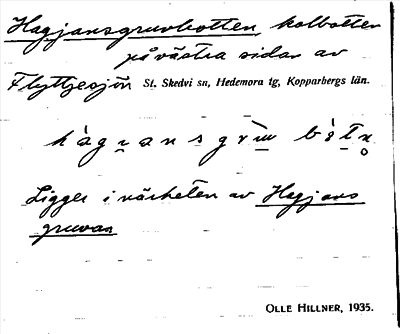 Hagjansgruvbotten, kolbotten
på västra sidan av
Flyttjesjön St. Skedvi sn, Hedemora tg, Kopparbergs län.
Ligger i närheten av Hagjans
gruvan
OLLE HILLNER, 1935.